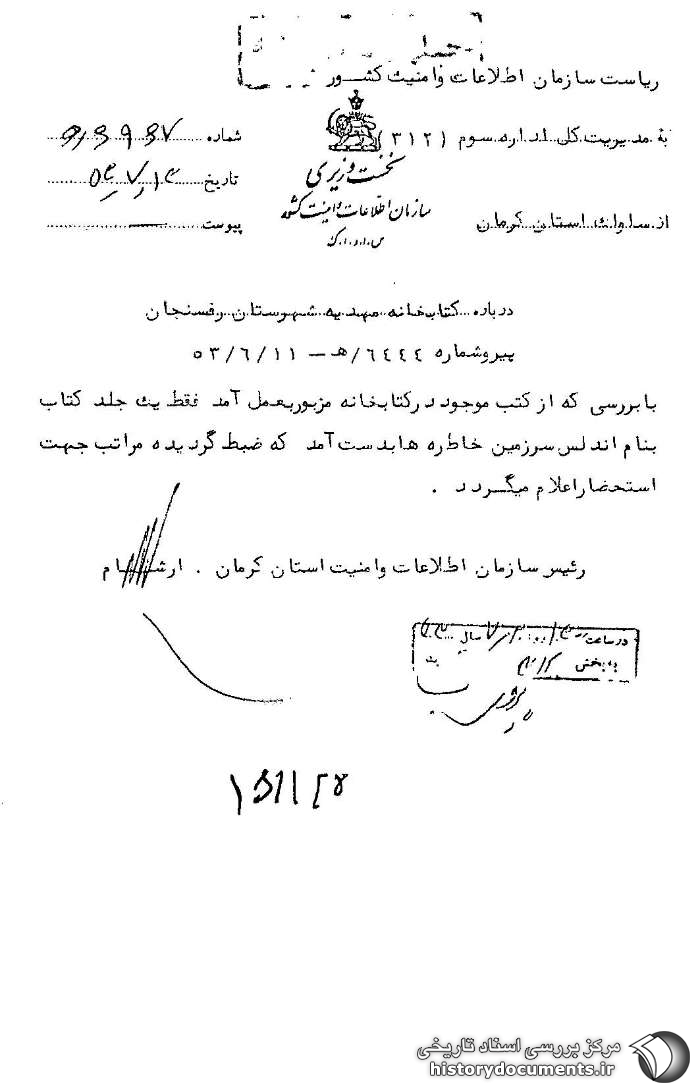 ریاست سازمان اطلاعات و امنیت کشور
به مدیریت کل اداره سوم (۳۱۲)
شماره
نخست وزیری
تاریخ
سازمان اطلاعات و امنیت کشور
س.ا.و.ا.ک
از ساواک استان کرمان
پیوست
درباره کتابخانه مهدیه شهرستان رفسنجان
پیرو شماره ۶۴۴۴/هـ - ۵۳/۶/۱۱
با بررسی که از کتب موجود در کتابخانه مزبور بعمل آمد فقط یک جلد کتاب
بنام اندلس سرزمین خاطره ها بدست آمد که ضبط گردیده مراتب جهت
استحضار اعلام میگردد .
رئیس سازمان اطلاعات و امنیت استان کرمان . ارشام
در ساعت
سال
به بخش
مرکز بررسی اسناد تاریخی
historydocuments.ir